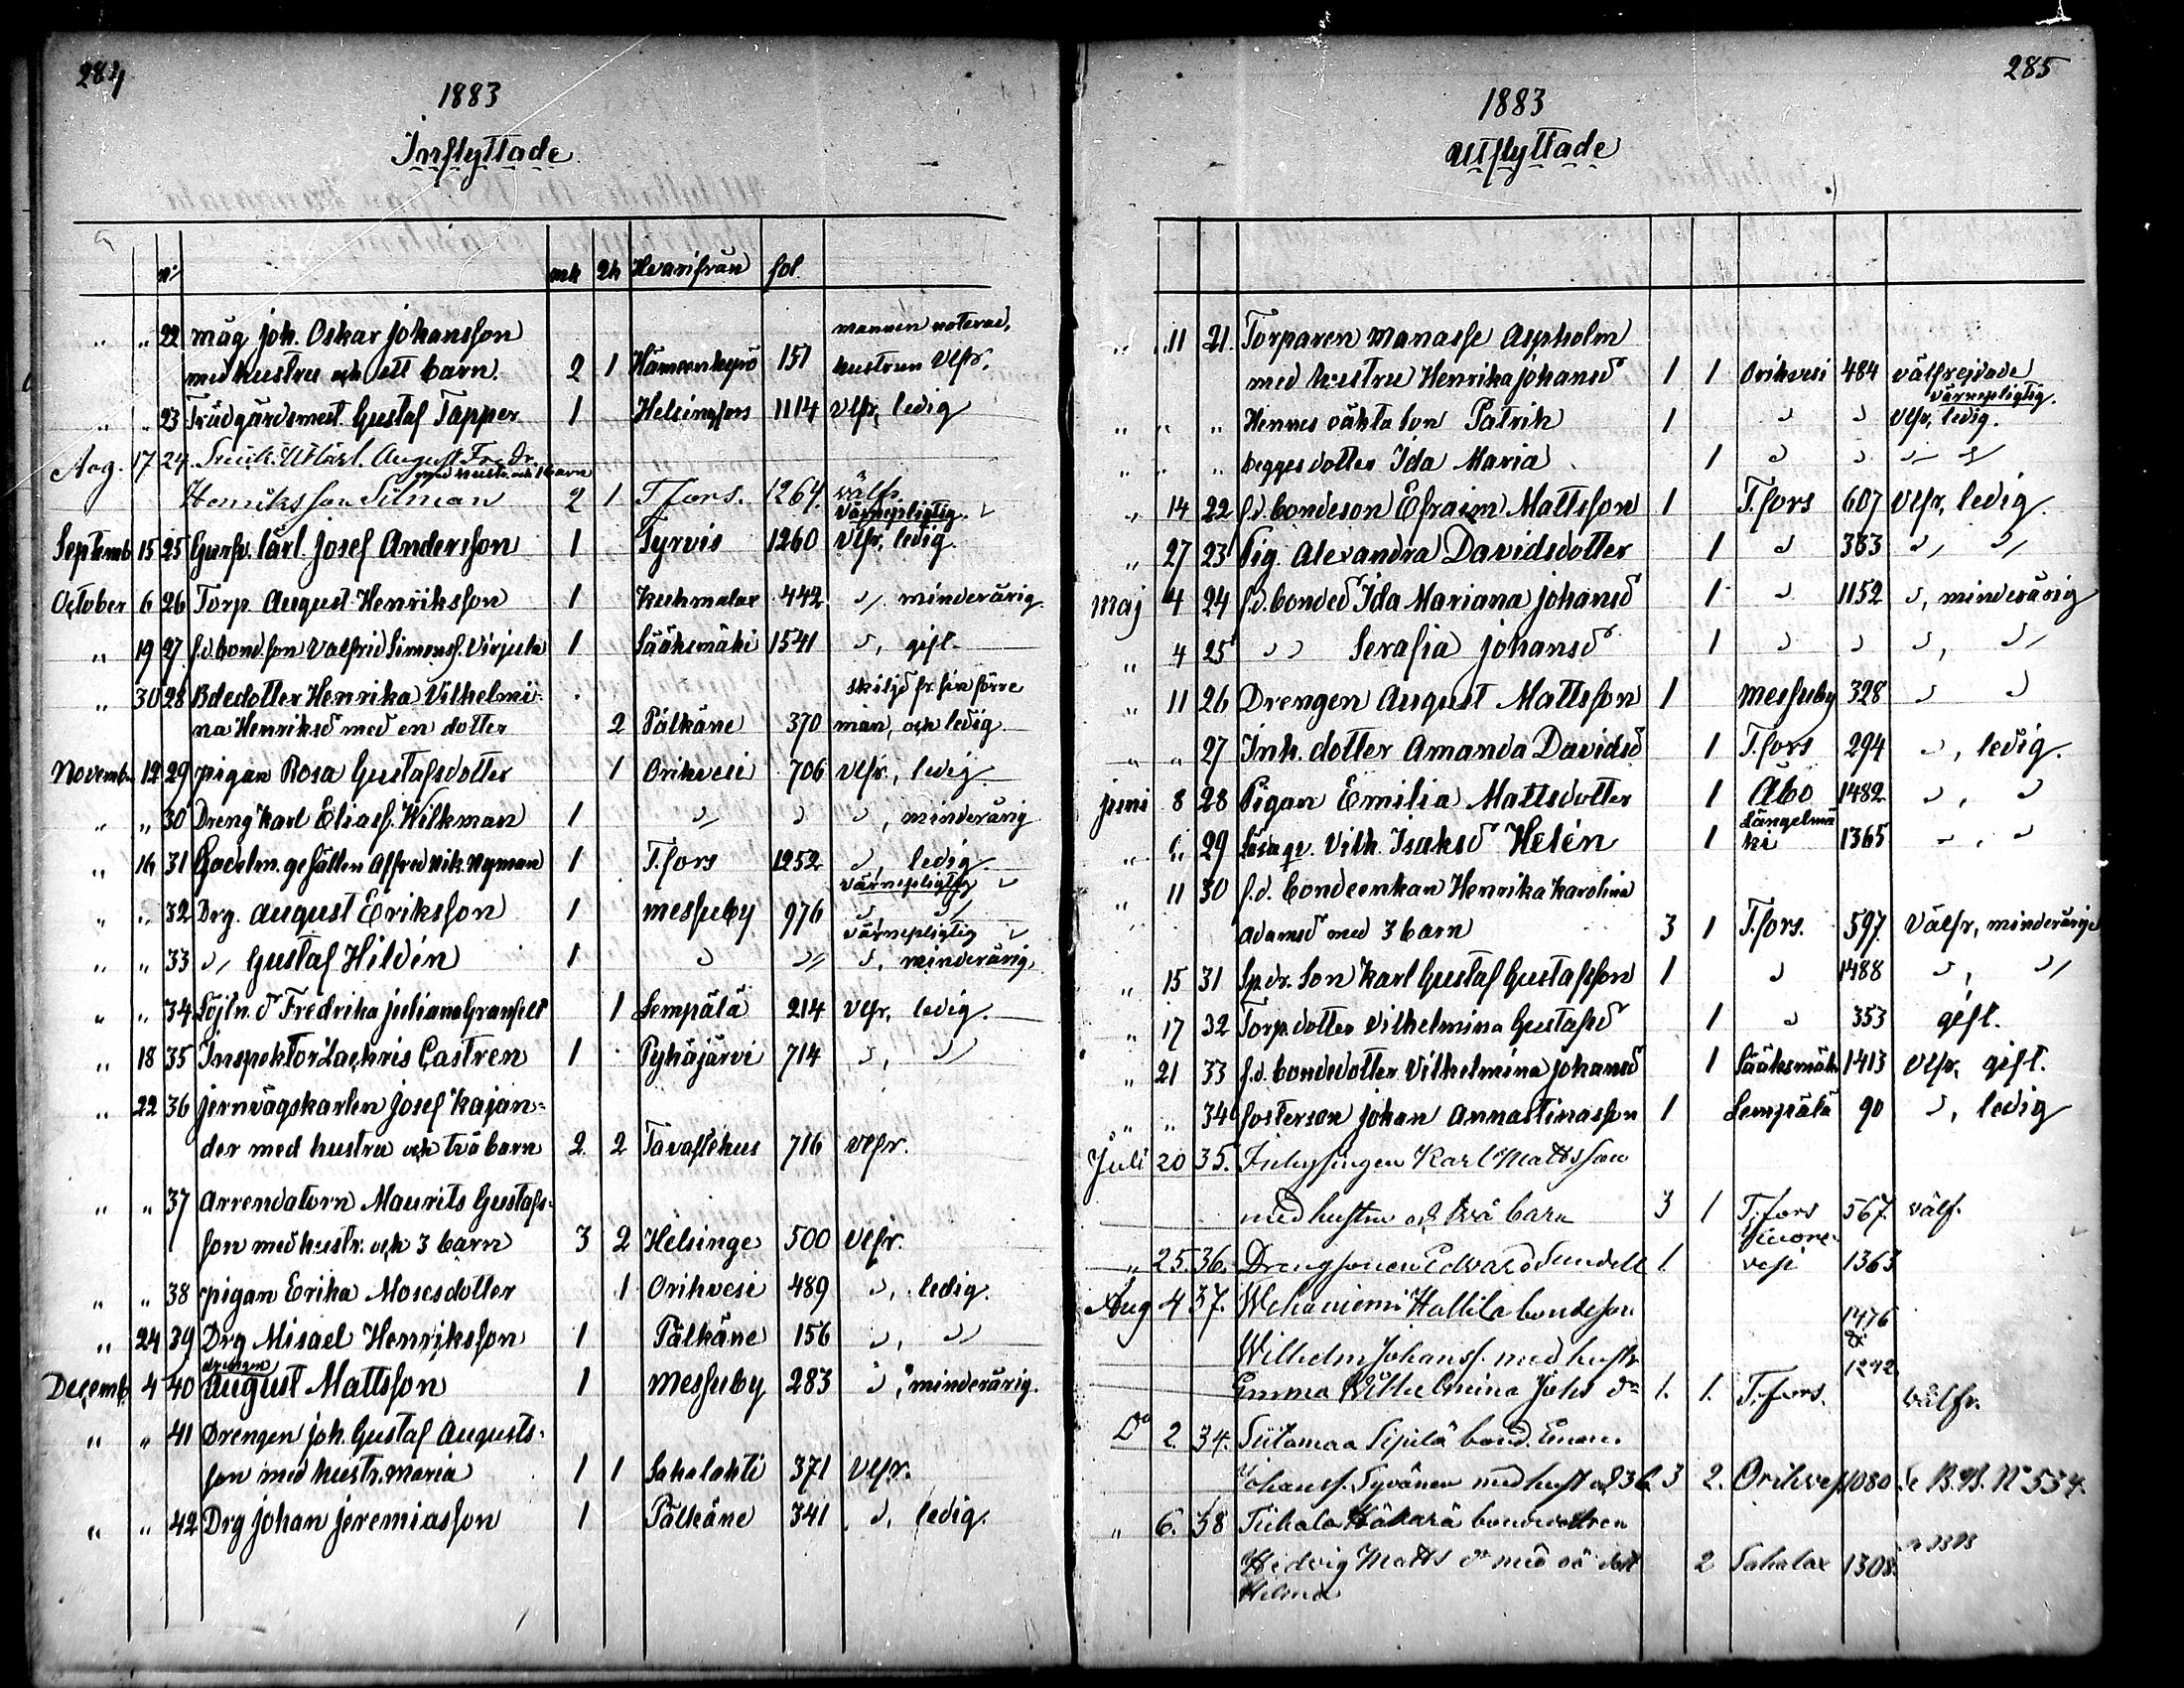 284
1883
Inflyttade
No mk qk Hvarifrån fol.
" " 22 måg Joh. Oskar Johansson mannen noterad,
med hustru och ett barn. 2 1 Hämeenkyrö 151 hustrun Vlfr.
" " 23 Trädgårdsmest. Gustaf Tapper 1 Helsingfors 1114 Vlfr, ledig
Aug. 17 24. August Fredr.
med hustr. och 1 barn
Henriksson Silman 2 1 T.fors. 1264. välfr.
värnepligtig
Septemb 15 25 Garfv. lärl. Josef Andersson 1 Tyrvis 1260 Vlfr, ledig.
October 6 26 Torp. August Henriksson 1 Kuhmalax 442 " minderårig
" 19 27 f.d. bond. son Valfrid Simonss. Virjula 1 Sääksmäki 1541 ", gift.
" 30 28 Bdedotter Henrika Vilhelmi- skiljd fr. sin förre
na Henriksd med en dotter 2 Pälkäne 370 man, och ledig.
Novemb. 12 29 pigan Rosa Gustafsdotter 1 Orihvesi 706 Vlfr., ledig
" " 30 Dreng Karl Eliass. Wilkman 1 " " ", minderårig
" 16 31 gesällen Alfred Nik. Nyman 1 T.fors 1252 ", ledig.
värnepligtig
" " 32 Drg. August Eriksson 1 Messuby 976 " "
värnepligtig
" " 33 " Gustaf Hildén 1 " " ", minderårig,
" " 34 Löjtn. dr Fredrika Juliana Granfelt 1 Lempälä 214 Vlfr, ledig.
" 18 35 Inspektor Zachris Castren 1 Pyhäjärvi 714 ", "
" 22 36 jernvägskarlen Josef Kajan-
der med hustru och två barn 2. 2 Tavastehus 716 Vlfr.
" " 37 Arrendatorn Maurits Gustafs-
son med hustr. och 3 barn 3 2 Helsinge 500 Vlfr.
" " 38 pigan Erika Mosesdotter 1 Orihvesi 489 ", ledig.
" 24 39 Drg Misael Henriksson 1 Pälkäne 156 ", "
drengen
Decemb. 4 40 August Mattsson 1 Messuby 283 ", minderårig.
" " 41 Drengen Joh. Gustaf Augusts-
son med hustr. Maria 1 1 Sahalahti 371 Vlfr.
" " 42 Drg Johan Jeremiasson 1 Pälkäne 341 ", ledig.
285
1883
Utflyttade
" 11 21. Torparen Manasse Aspholm
med hustru Henrika Johansd 1 1 Orihvesi 484 välfrejdade
värnepligtig.
" " " Hennes oäkta son Patrik 1 " " Vlfr, ledig.
" " " begges dotter Ida Maria 1 " " " "
" 14 22 f.d. bondeson Efraim Mattsson 1 T.fors 607 Vlfr, ledig.
" 27 23 Pig. Alexandra Davidsdotter 1 " 363 " "
Maj 4 24 f.d. bonded Ida Mariana Johansd 1 " 1152 ", minderårig
" 4 25 " " Serafia Johansd 1 " " ", "
" 11 26 Drengen August Mattsson 1 Messuby 328 " "
" " 27 Inh. dotter Amanda Davidsd 1 T.fors 294 ", ledig.
Juni 8 28 Pigan Emilia Mattsdotter 1 Åbo 1482 ", "
Längelmä
" " 29 Vilh. Isaksd Helén 1 ki 1365 ", "
" 11 30 f.d. bondeenkan Henrika Karolina
Adamsd med 3 barn 3 1 T.fors. 597. Välfr, minderårige
" 15 31 Spdr. son Karl Gustaf Gustafsson 1 " 1488 ", "
" 17 32 Torp.dotter Vilhelmina Gustafsd 1 " 353 gift.
" 21 33 f.d. bondedotter Vilhelmina Johansd 1 Sääksmäki 1413 Vlfr, gift.
" " 34 fosterson Johan Annastinasson 1 Lempälä 90 ", ledig
Juli 20 35. Inhysingen Karl Mattsson
med hustru och två barn 3 1 T.fors 567. välf.
Kuore-
" 25. 36. Drengsonen Edvard Sundell 1. vesi 1363
Aug 4 37. Wehaniemi Hallila bondeson 1476
Wilhelm Johanss. med hustr &
Emma Wilhelmina Johs dr 1. 1. T.fors. 1242 välfr.
Do 2. 34. Siitamaa Sipilä bond. Eman.
Johanss. Syvänen med hust och 3 b. 3 2. Orihvesi 1080 Se B.B. No 534.
" 6. 38 Tiihala bondedottren
Hedvig Matts dr med oä dott 2 Sahalax 1308.
Hilma